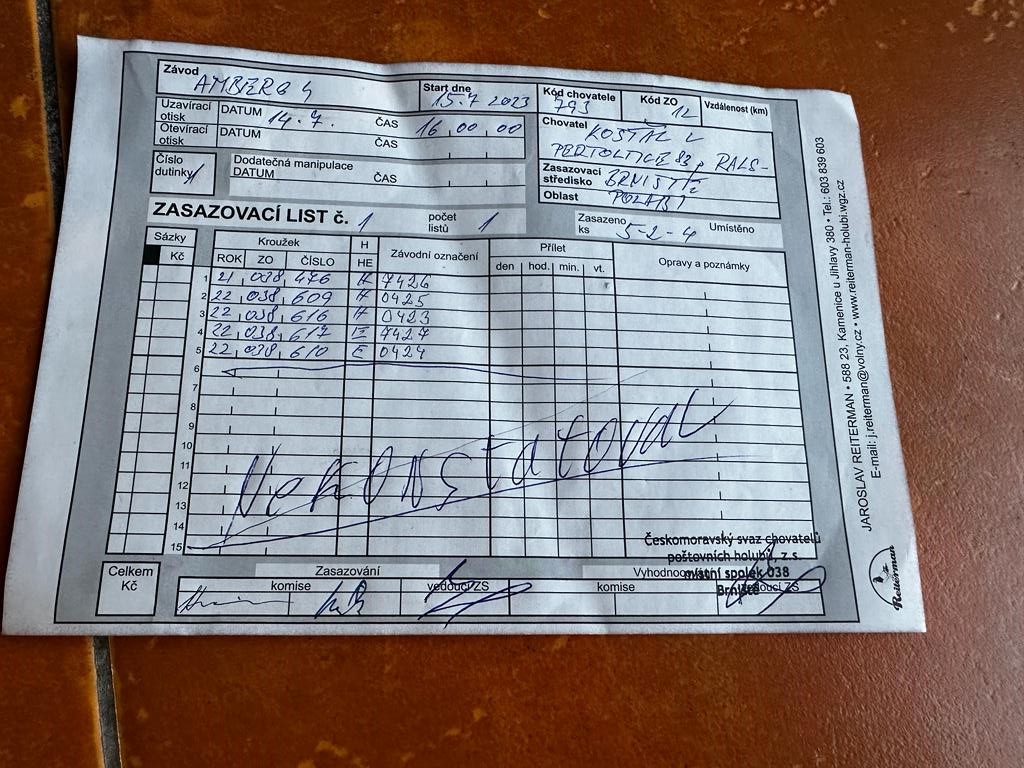 Závod AMBERG 4 Start dne 15.7 2023 Kód chovatele 793 Kód ZO 12 Vzdálenost (km)
Uzavírací otisk DATUM 14.7. ČAS 16,00,00
Otevírací otisk DATUM ČAS
Číslo dutinky 1 Dodatečná manipulace DATUM ČAS
Chovatel KOŠŤÁL L
PERTOLTICE 82, RALS-
Zasazovací středisko BRNIŠTĚ
Oblast
ZASAZOVACÍ LIST č. 1 počet listů 1 Zasazeno ks 5-2-4 Umístěno
Sázky Kroužek H Závodní označení Přílet Opravy a poznámky
Kč ROK ZO ČÍSLO HE den hod. min. vt.
1 21 038 476 H 7426
2 22 038 609 H 0425
3 22 038 616 H 0423
4 22 038 617 7427
5 22 038 610 0424
6
7
8
9
10
11
12
13
14
15
Nekonstatoval
Českomoravský svaz chovatelů
poštovních holubů, z.s.
místní spolek 038
Brniště
Celkem Kč Zasazování Vyhodnocování
komise vedoucí ZS komise vedoucí ZS
JAROSLAV REITERMAN • 588 23, Kamenice u Jihlavy 380 • Tel.: 603 839 603
E-mail: j.reiterman@volny.cz • www.reiterman-holubi.wgz.cz
Reiterman